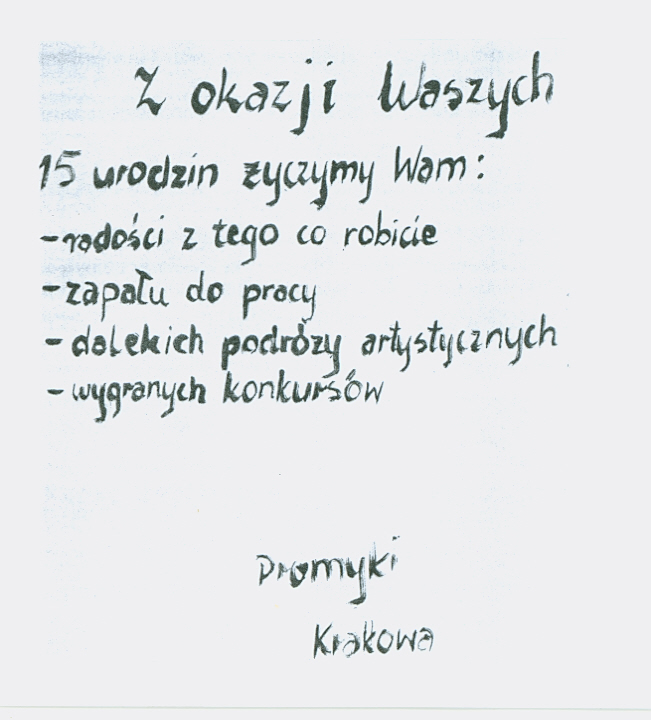 Z okazji Waszych
15 urodzin życzymy Wam:
- radości z tego co robicie
- zapału do pracy
- dalekich podróży artystycznych
- wygranych konkursów
Promyki
Krakowa